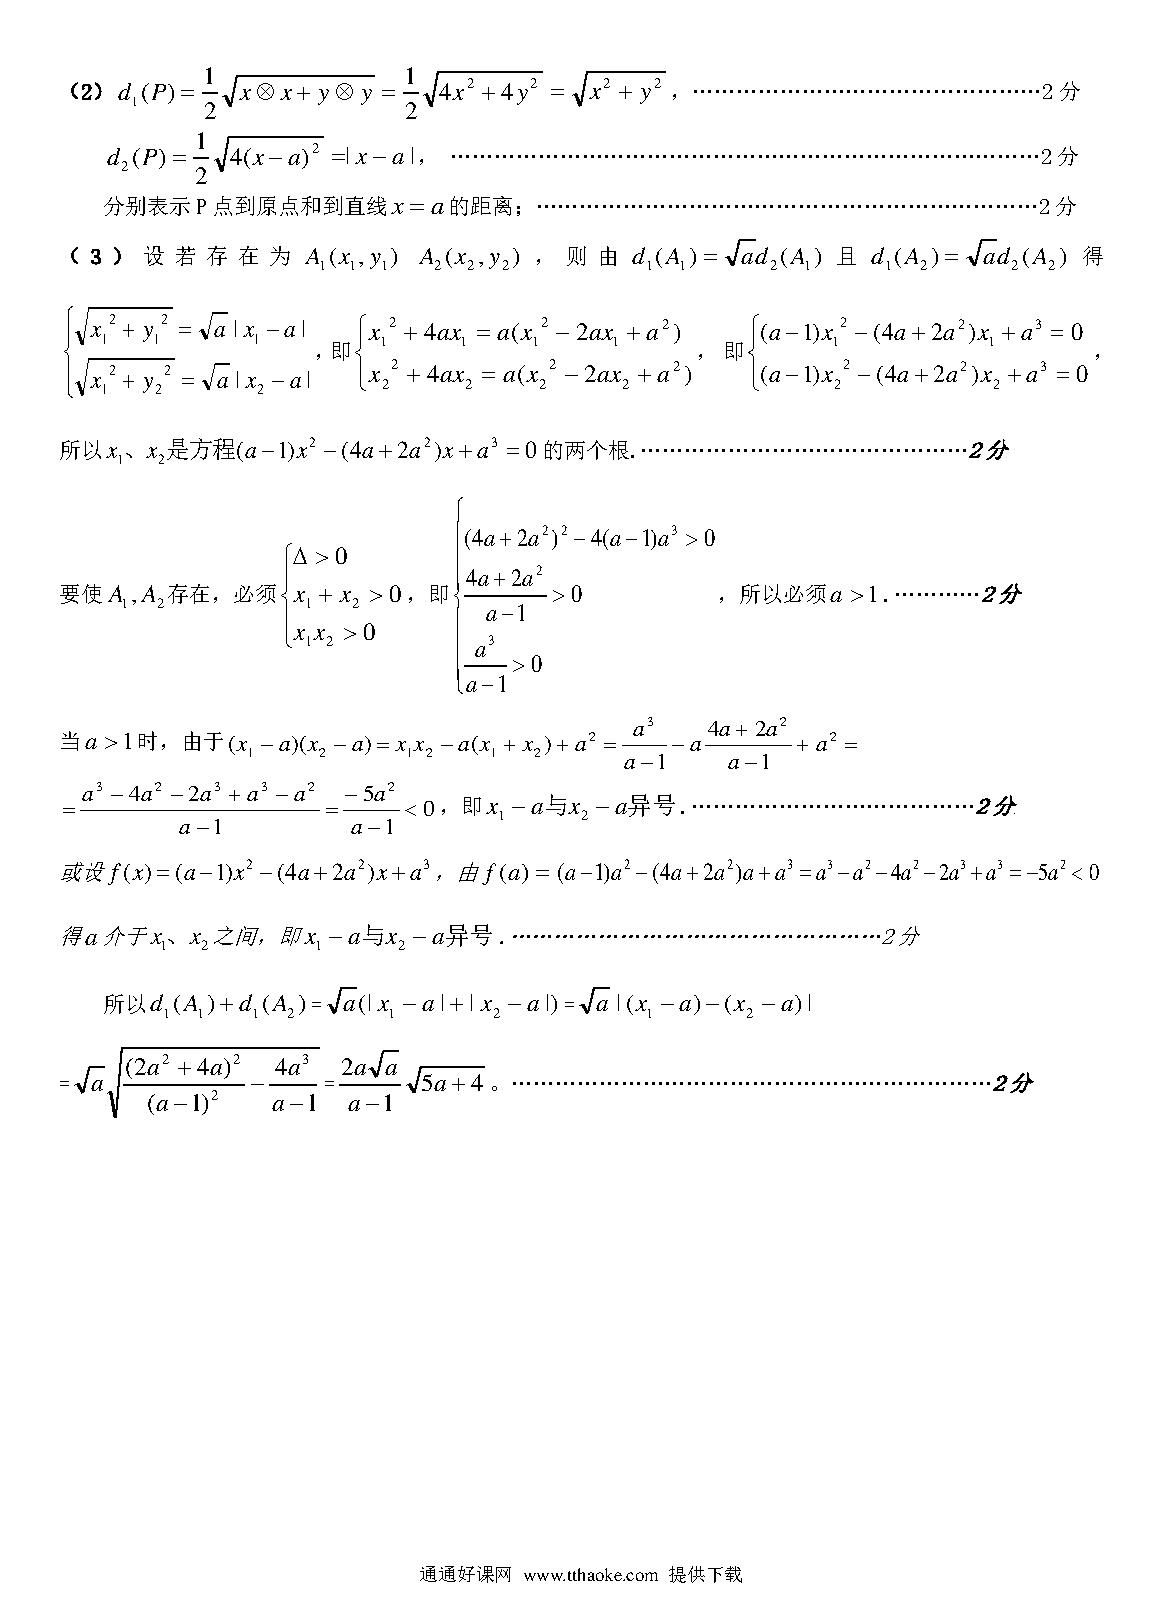 （2）d₁(P)=1/2√(x⊗x+y⊗y)=1/2√(4x²+4y²)=√(x²+y²)，………………………………………2分
d₂(P)=1/2√(4(x−a)²)=|x−a|，………………………………………………………………2分
分别表示P点到原点和到直线x=a的距离；……………………………………………………2分
（3）设若存在为A₁(x₁,y₁) A₂(x₂,y₂)，则由d₁(A₁)=√a d₂(A₁)且d₁(A₂)=√a d₂(A₂)得
{√(x₁²+y₁²)=√a|x₁−a| √(x₁²+y₂²)=√a|x₂−a|，即{x₁²+4ax₁=a(x₁²−2ax₁+a²) x₂²+4ax₂=a(x₂²−2ax₂+a²)，即{(a−1)x₁²−(4a+2a²)x₁+a³=0 (a−1)x₂²−(4a+2a²)x₂+a³=0，
所以x₁、x₂是方程(a−1)x²−(4a+2a²)x+a³=0的两个根.………………………………………2分
要使A₁,A₂存在，必须{Δ>0 x₁+x₂>0 x₁x₂>0，即{(4a+2a²)²−4(a−1)a³>0 (4a+2a²)/(a−1)>0 a³/(a−1)>0，所以必须a>1.…………2分
当a>1时，由于(x₁−a)(x₂−a)=x₁x₂−a(x₁+x₂)+a²=a³/(a−1)−a(4a+2a²)/(a−1)+a²=
=(a³−4a²−2a³+a³−a²)/(a−1)=−5a²/(a−1)<0，即x₁−a与x₂−a异号.…………………………………2分
或设f(x)=(a−1)x²−(4a+2a²)x+a³，由f(a)=(a−1)a²−(4a+2a²)a+a³=a³−a²−4a²−2a³+a³=−5a²<0
得a介于x₁、x₂之间，即x₁−a与x₂−a异号.……………………………………………2分
所以d₁(A₁)+d₁(A₂)=√a(|x₁−a|+|x₂−a|)=√a|(x₁−a)−(x₂−a)|
=√a√((2a²+4a)²/(a−1)²−4a³/(a−1))=2a√a/(a−1)√(5a+4)。…………………………………………………………2分
通通好课网 www.tthaoke.com 提供下载